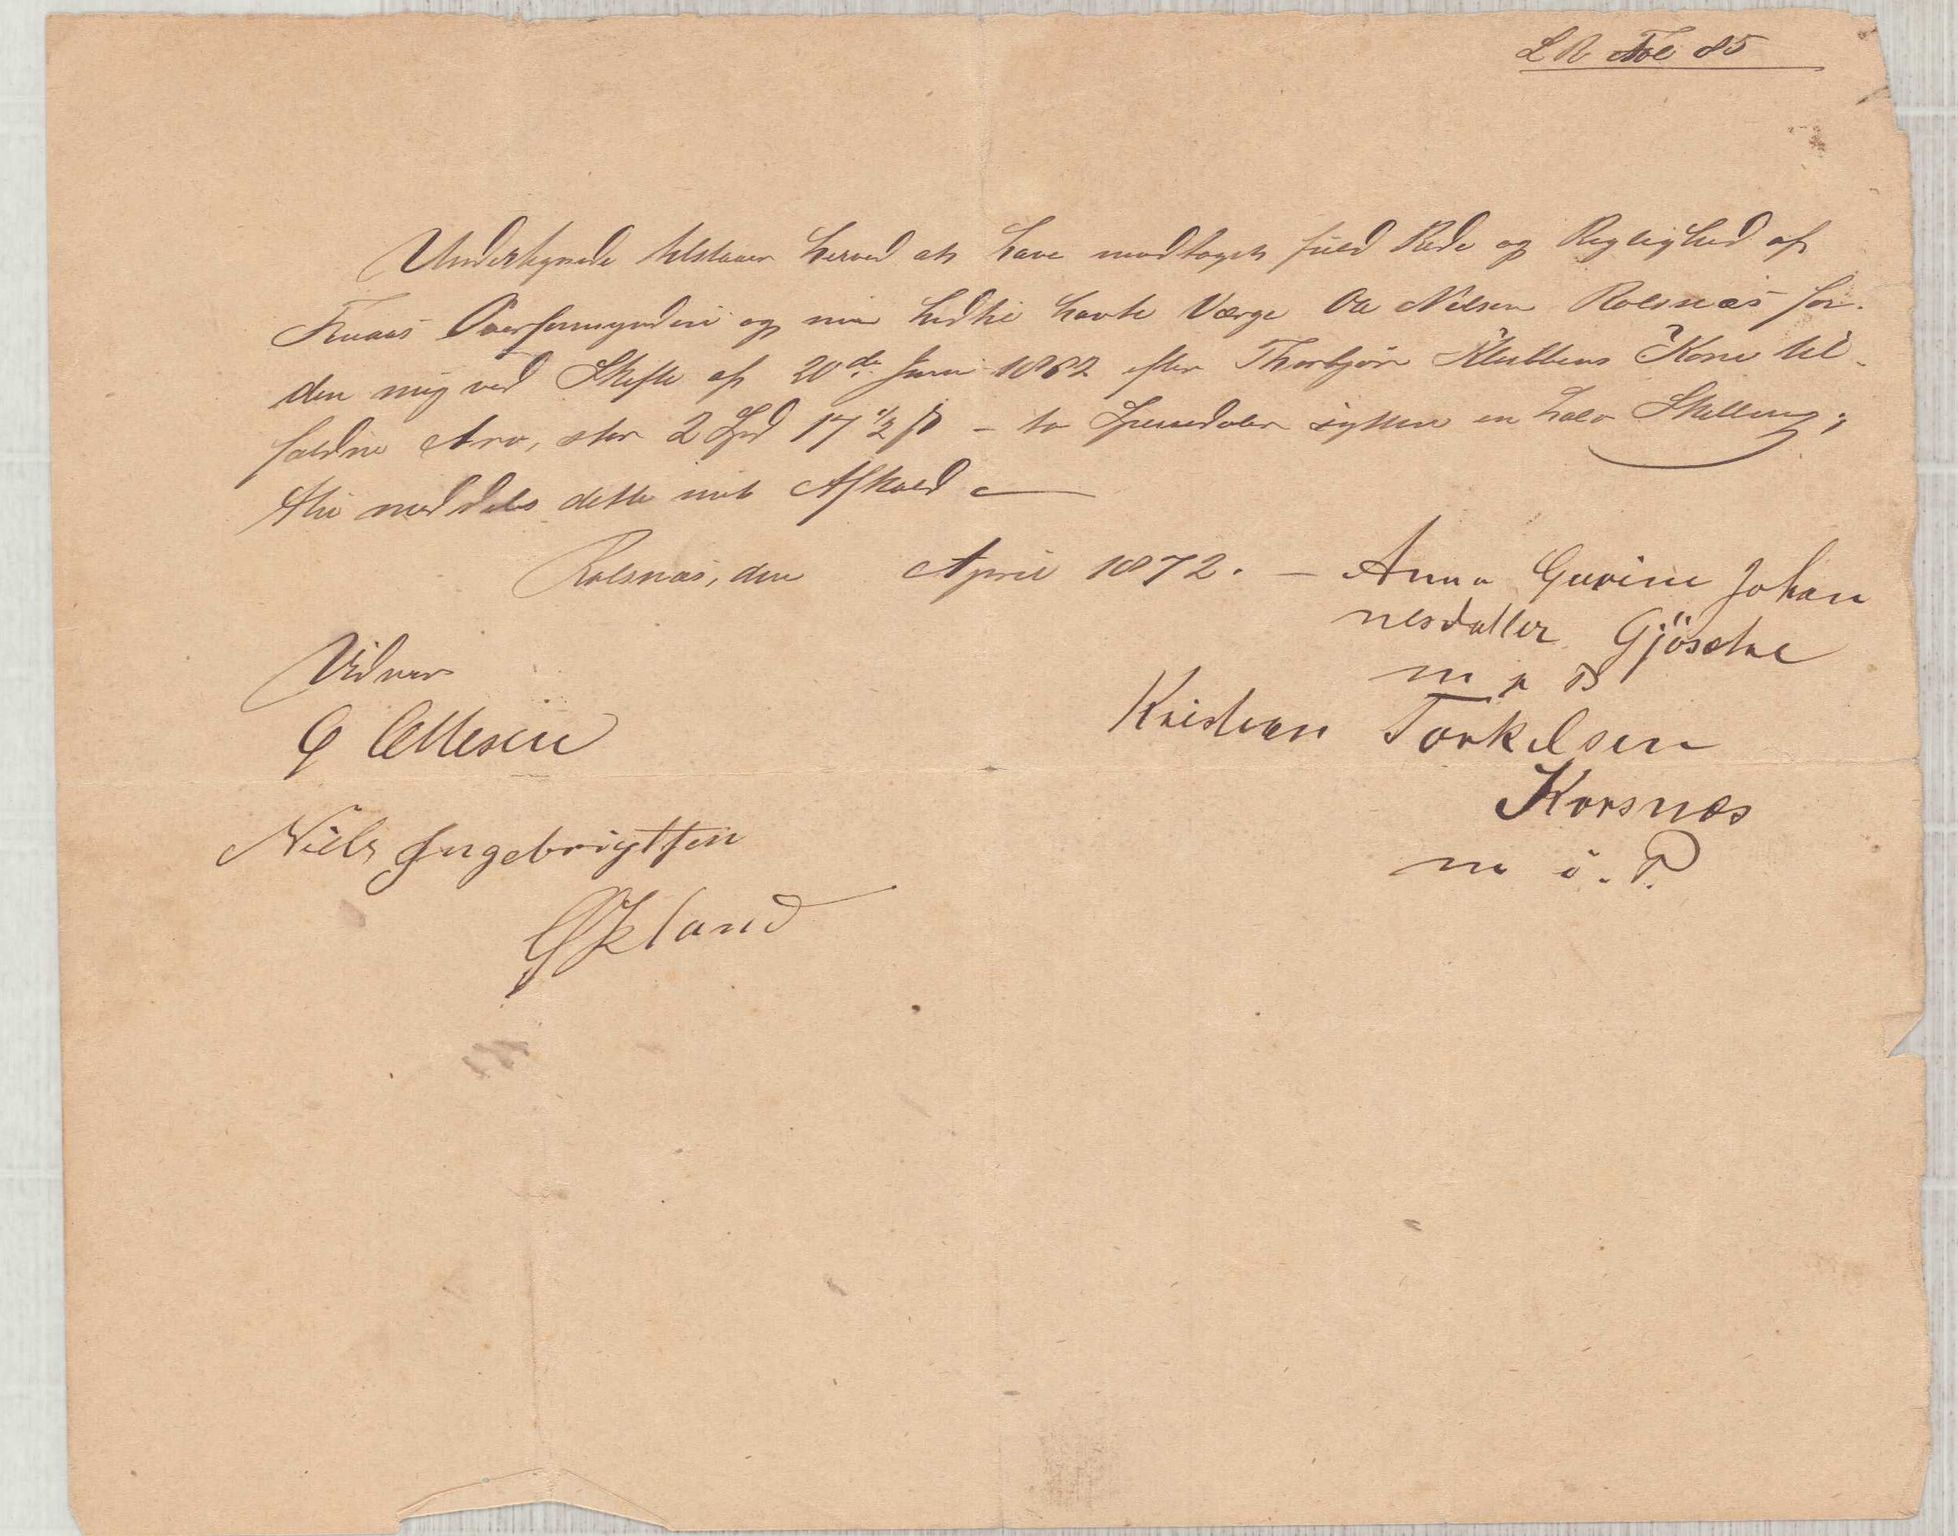 L R Fol 85
Undertegnede tilstaaer herved at have modtaget fuld Rede og Rigtighed af
Finaas Overformynderi og min hidtil havte Værge Ole Nilsen Rolsnæs for
den mig ved Skifte af 20de Juni 1862 efter Thorbjør Klubbens Kone til-
faldne Arv, stor 2 Spd 17 1/2 ß - to Speciedaler sytten en halv Skilling;
thi meddeles dette mit Afkald
Rolsnæs, den April 1872. - Anna Gurine Johan
nesdatter Gjösche
Vidner
m p P
G Ellesen
Kristian Torkelsen
Korsnæs
Niels Ingebrigtsen
m i. P.
Økland